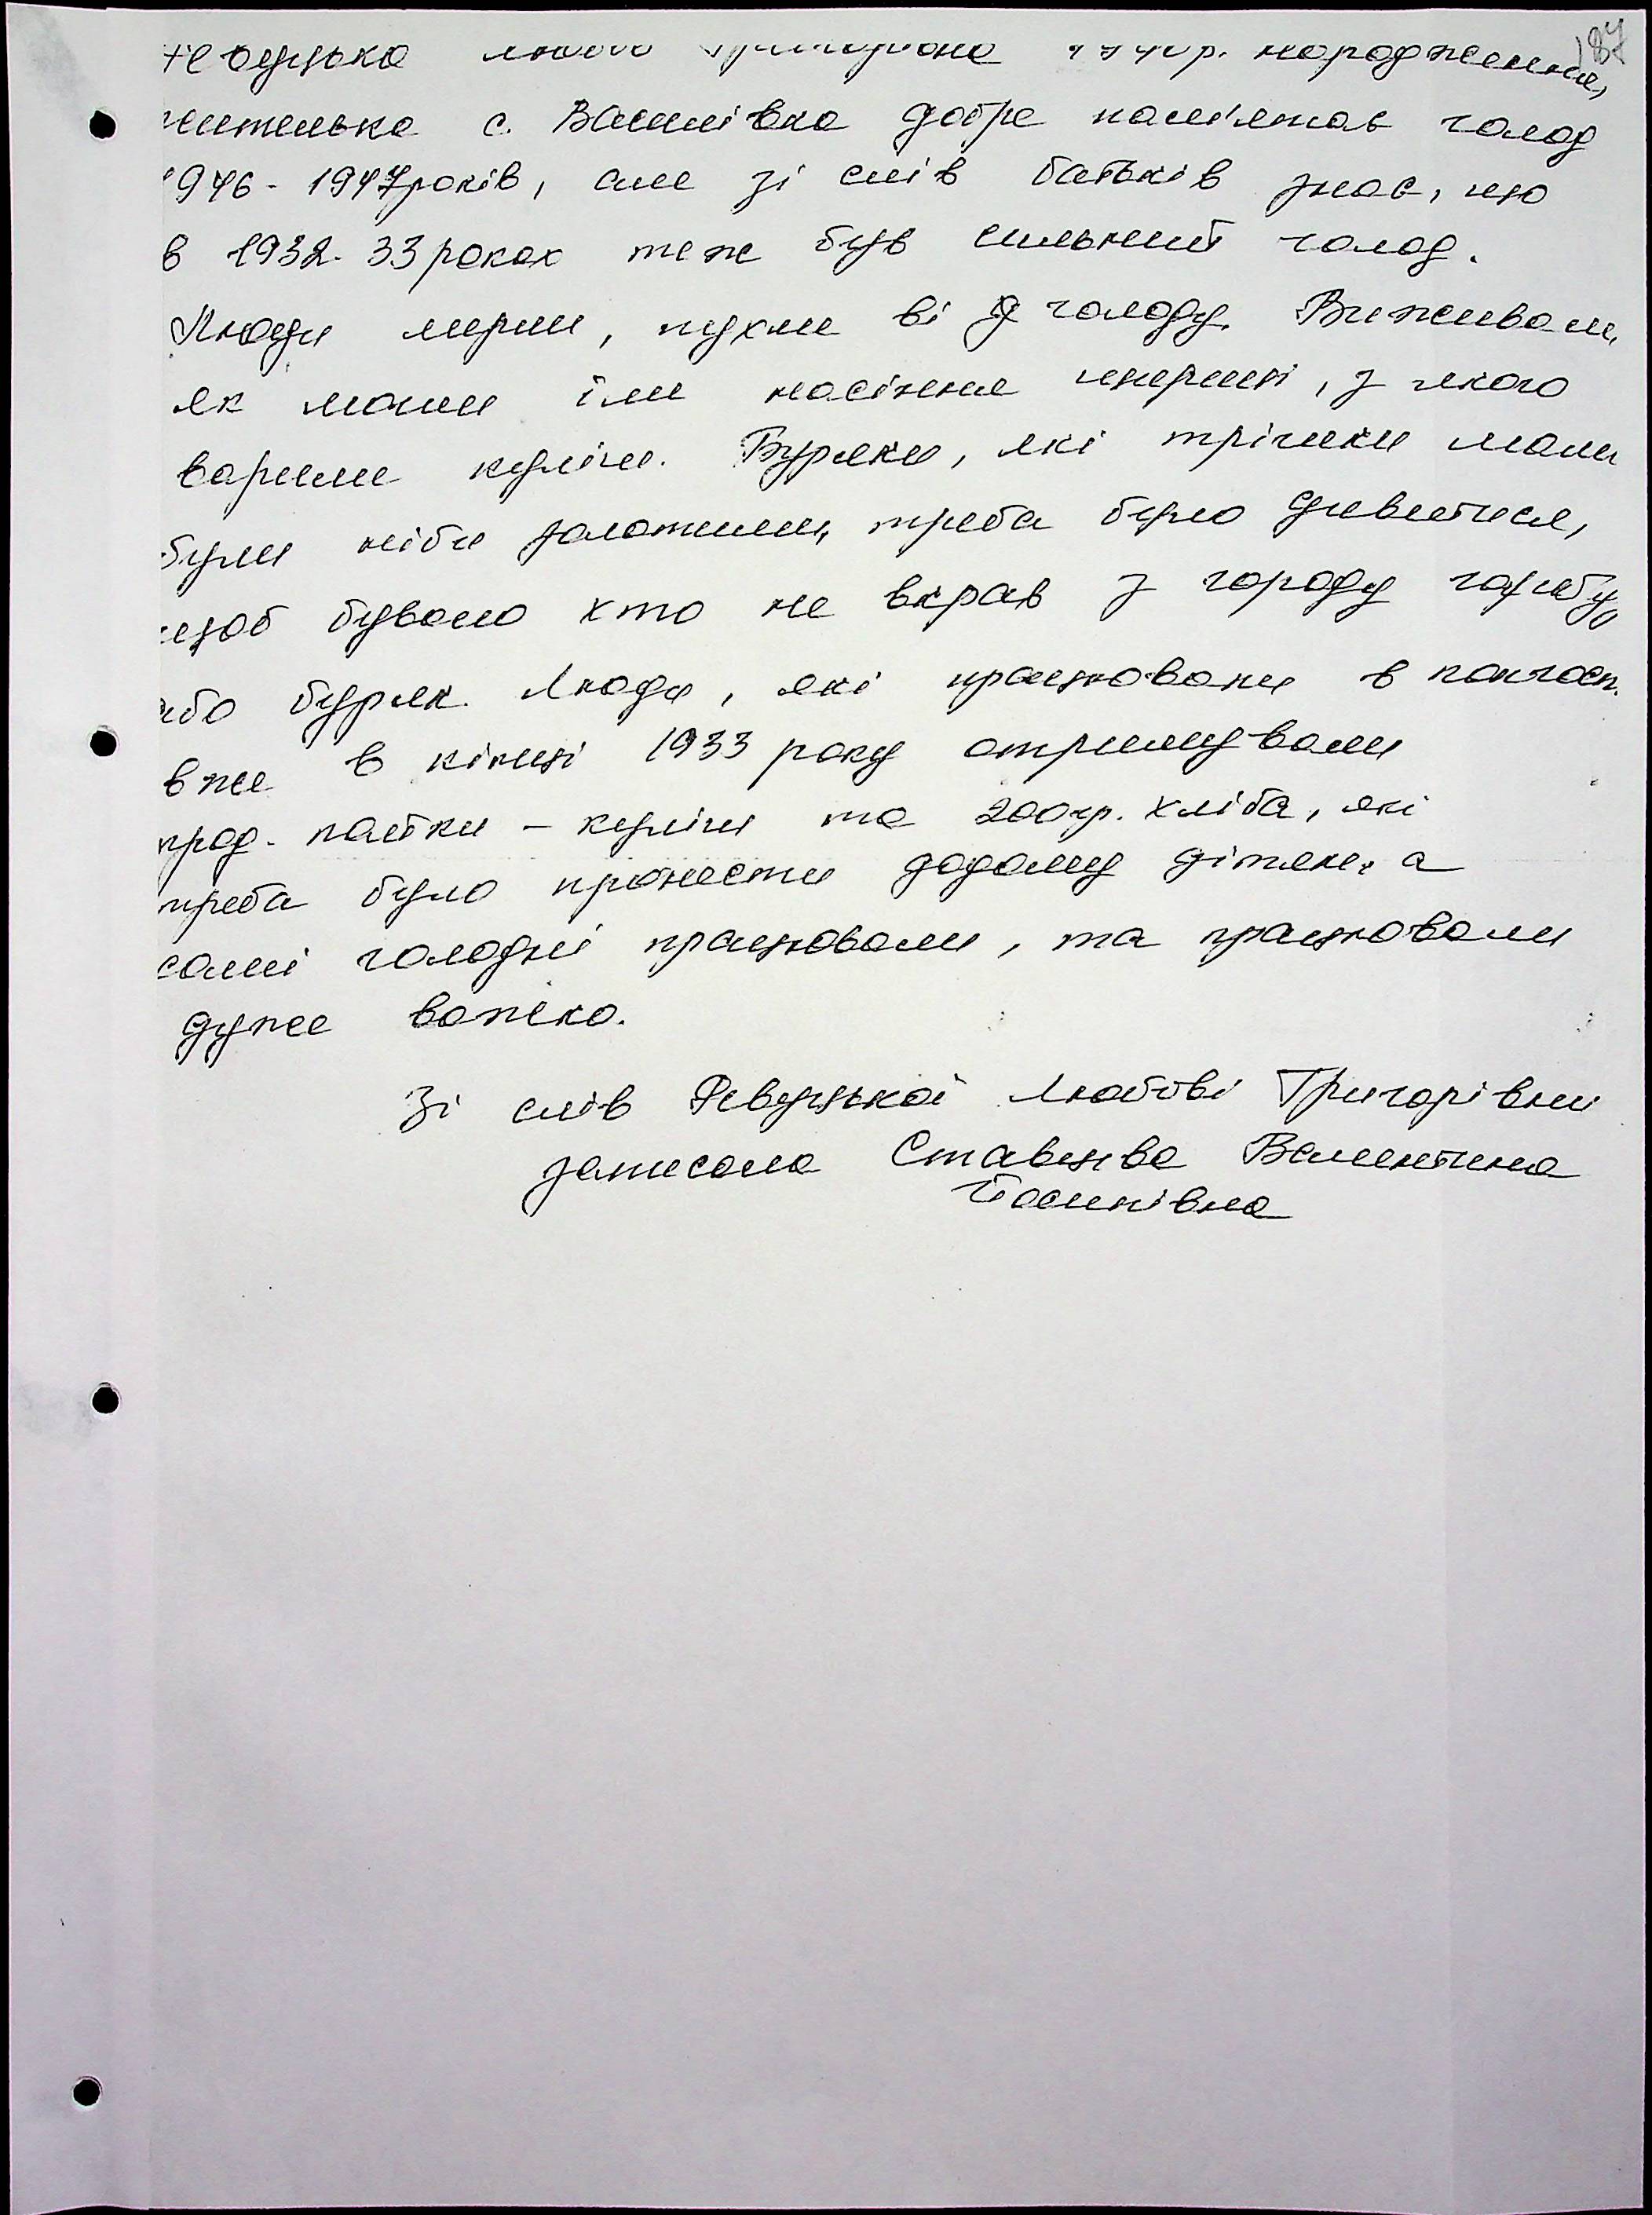 187
Ревуцька Любов Григорівна 1940р. народження,
жителька с. Вашківка добре пам'ятає голод
1946-1947 років, але зі слів батьків знає, що
в 1932-33 роках теж був сильний голод.
Люди мерли, пухли від голоду. Виживали,
як могли їли насіння щериці, з якого
варили куліш. Буряки, які трішки мали
були ніби золотими, треба було дивитися,
щоб бувало хто не вкрав з городу гарбуз,
або буряк. Люди, які працювали в колгосп.
вже в кінці 1933 року отримували
прод. пайки – куліш та 200гр. хліба, які
треба було принести додому дітям, а
самі голодні працювали, та працювали
дуже важко.
Зі слів Ревуцької Любові Григорівни
записала Ставцева Валентина
Йосипівна